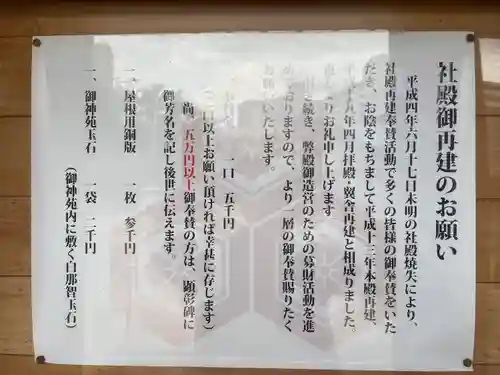 社殿御再建のお願い
平成四年六月十七日未明の社殿焼失により、
社殿再建奉賛活動で多くの皆様の御奉賛をいた
だき、お陰をもちまして平成十三年本殿再建、
平成十九年四月拝殿・翼舎再建と相成りました。
よりお礼申し上げます
き続き、弊殿御造営のための募財活動を進
めておりますので、より一層の御奉賛賜りたく
お願いいたします。
一口 五千円
口以上お願い頂ければ幸甚に存じます)
尚、五万円以上御奉賛の方は、顕彰碑に
御芳名を記し後世に伝えます。
一、屋根用銅版 一枚 参千円
一、御神苑玉石 一袋 二千円
(御神苑内に敷く白那智玉石)